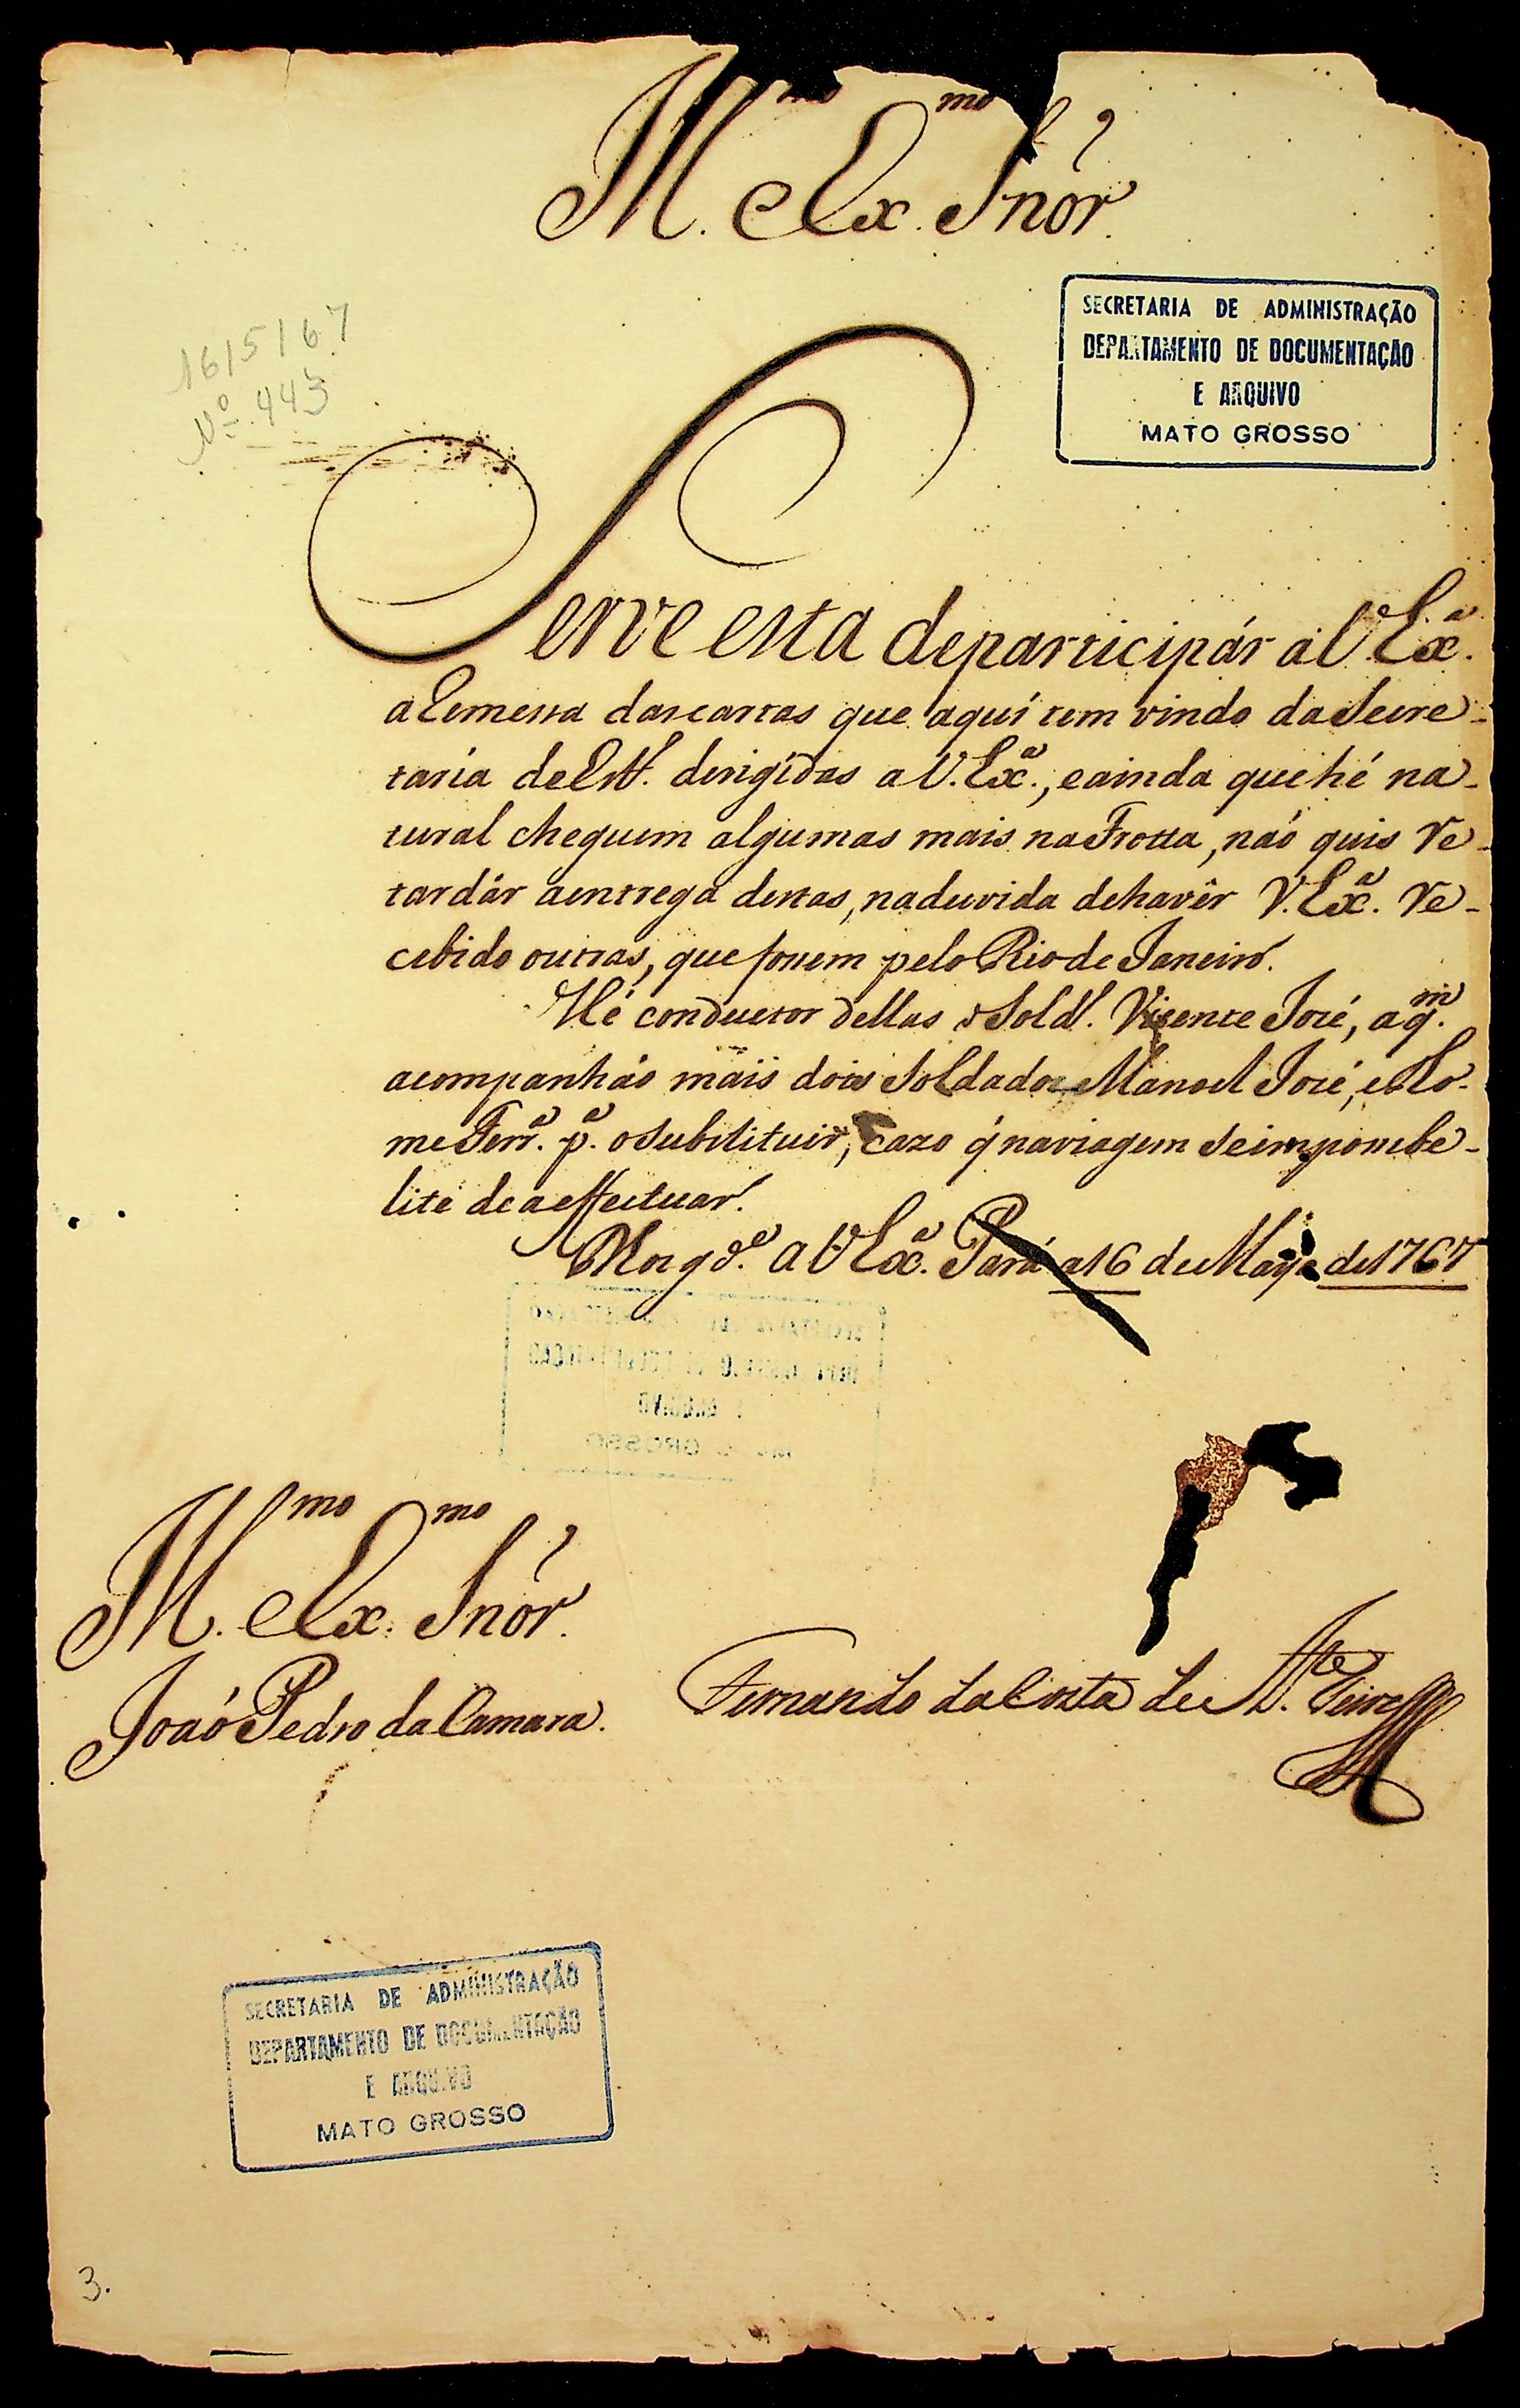 Ill.mo e Ex.mo Snõr.
16/5/67
Nº 443
SECRETARIA DE ADMINISTRAÇÃO
DEPARTAMENTO DE DOCUMENTAÇÃO
E ARQUIVO
MATO GROSSO
Serve esta departicipár aV. Ex.ª
aRemessa dascartas que aquí tem vindo daSecre-
taria deEst. derigidas aV. Ex.ª, eainda quehé na-
tural cheguem algumas mais naFrotta, naó quis re-
tardár aentrega destas, naduvida dehavêr V. Ex.ª re-
cebido outras, que fossem pelo Rio de Janeiro.
Hé conductor dellas o Sold. Vicente José, aq.m
acompanháo mais dois Soldados Manoel José, e
me Ferr.ª p.ª osubstituir, cazo q̃ naviagem Seimpossibe-
lite de aeffectuar.
D.s g.de a V. Ex.ª Pará a16 de Mayo de1767
Ill.mo e Ex.mo Snõr.
Joaó Pedro da Camara.
Fernando da Costa de At.de Teive
SECRETARIA DE ADMINISTRAÇÃO
DEPARTAMENTO DE DOCUMENTAÇÃO
E ARQUIVO
MATO GROSSO
3.